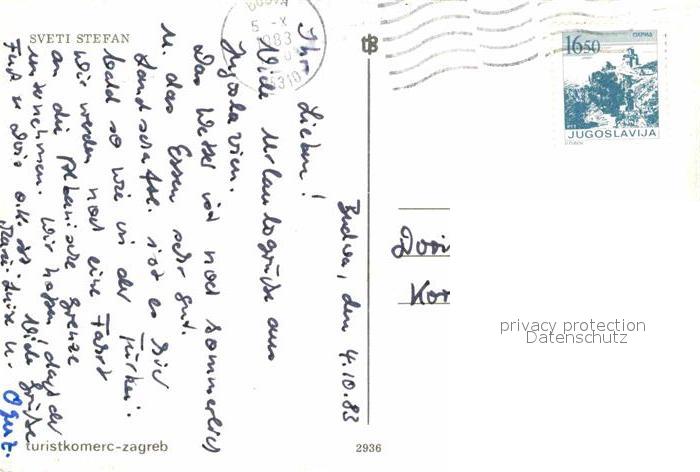 SVETI STEFAN
5 -X
1983
16.50
OHRID
JUGOSLAVIJA
Budva, den 4.10.83
Ihr Lieben!
Viele Urlaubsgrüße aus
Jugoslavien.
Das Wetter ist noch sommerlich
u. das Essen sehr gut.
Landschaftl. ist es hier
bald so wie in der Türkei.
Wir werden noch eine Fahrt
an die Albanische Grenze
unternehmen. Wir hoffen, dass der
Fuß v. Doris o.K. ist. Viele Grüße
u.
Oguz.
Dori
Kor
privacy protection
Datenschutz
turistkomerc-zagreb
2936